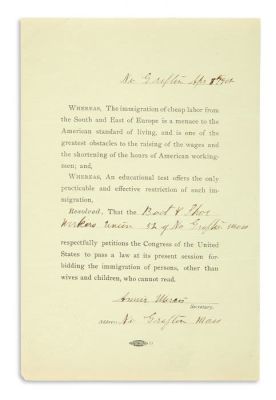 No Grafton Apr 8th 1902
WHEREAS, The immigration of cheap labor from
the South and East of Europe is a menace to the
American standard of living, and is one of the
greatest obstacles to the raising of the wages and
the shortening of the hours of American working-
men; and,
WHEREAS, An educational test offers the only
practicable and effective restriction of such im-
migration,
Resolved, That the Boot & Shoe
Workers Union of No Grafton Mass
respectfully petitions the Congress of the United
States to pass a law at its present session for-
bidding the immigration of persons, other than
wives and children, who cannot read.
Annie
Secretary.
No. Grafton Mass